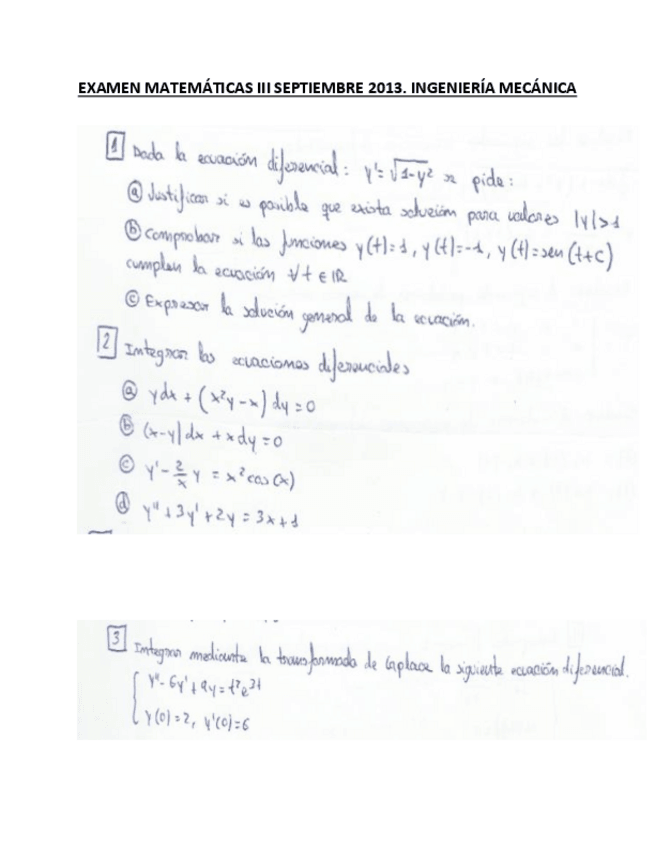 EXAMEN MATEMÁTICAS III SEPTIEMBRE 2013. INGENIERÍA MECÁNICA
1 Dada la ecuación diferencial: y'=√1-y² se pide:
ⓐ Justificar si es posible que exista solución para valores |y|>1
ⓑ comprobar si las funciones y(t)=1, y(t)=-1, y(t)=sen(t+C)
cumplen la ecuación ∀t∈ℝ
ⓒ Expresar la solución general de la ecuación.
2 Integrar las ecuaciones diferenciales
ⓐ ydx + (x²y-x)dy=0
ⓑ (x-y)dx + xdy=0
ⓒ y'-2/x y = x²cos(x)
ⓓ y''+3y'+2y=3x+1
3 Integrar mediante la transformada de Laplace la siguiente ecuación diferencial.
y''-6y'+9y=t²e³ᵗ
y(0)=2, y'(0)=6